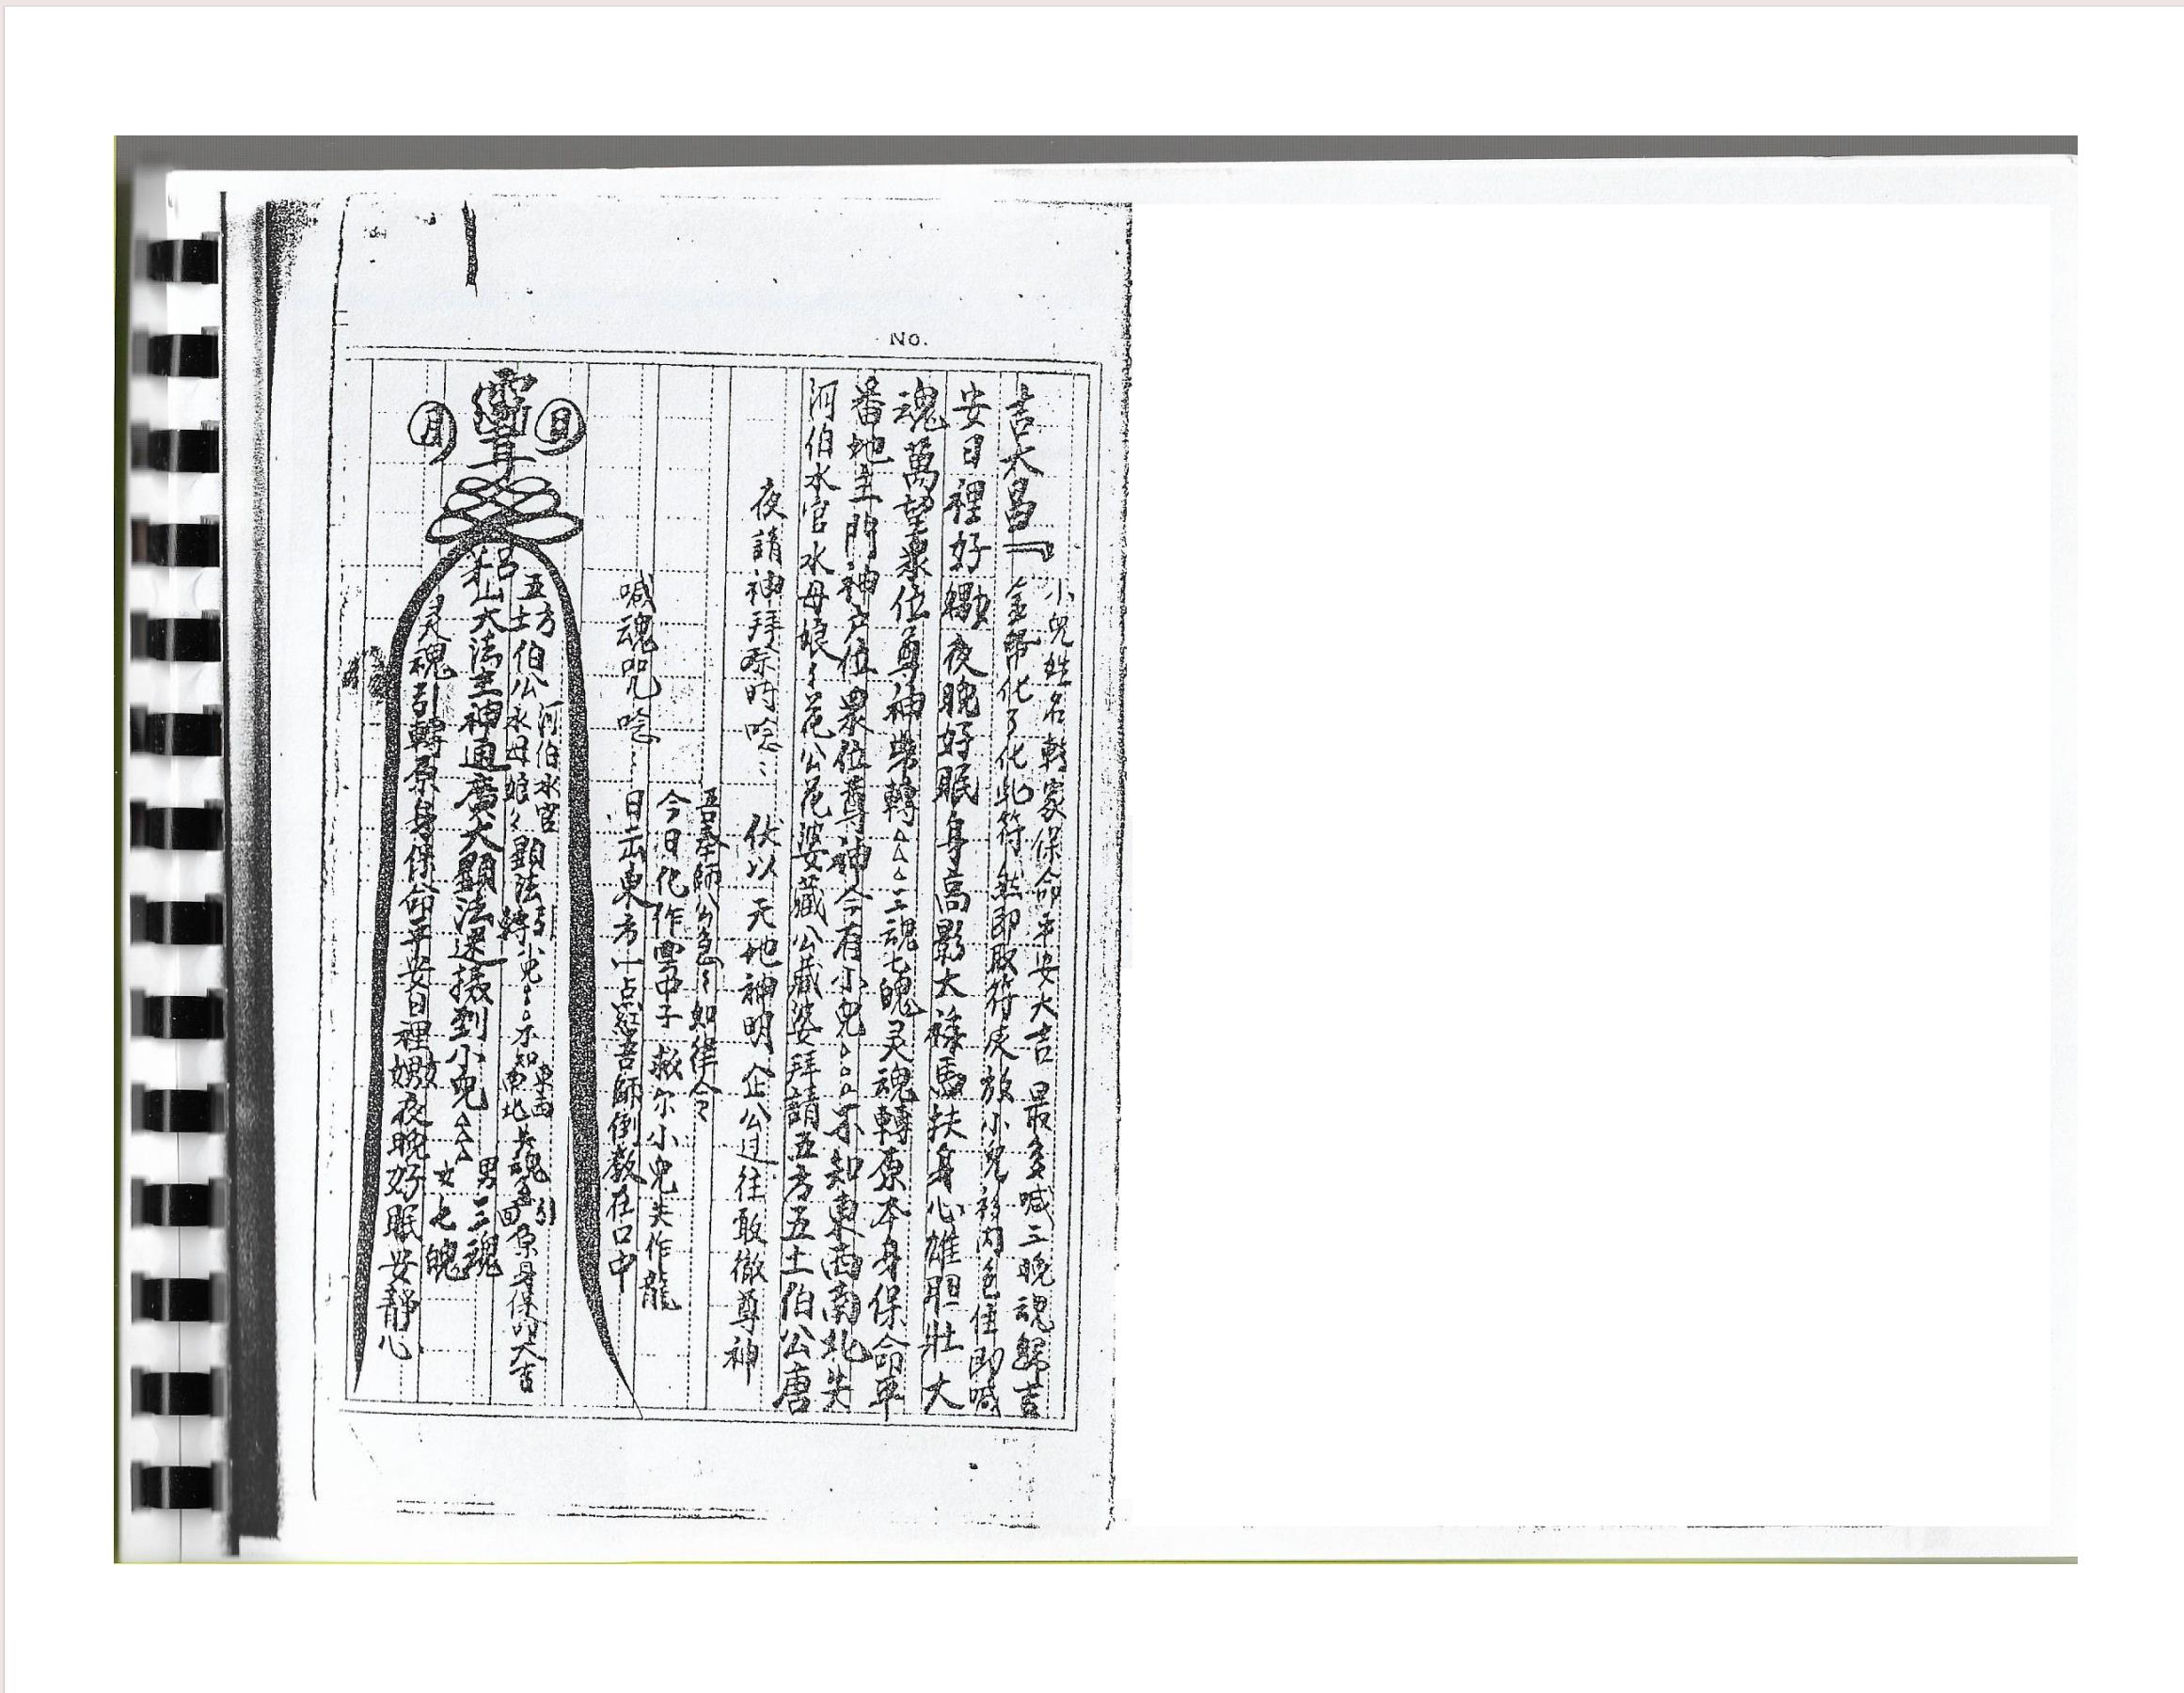 No.
吉大昌『小兒姓名轉家保命平安大吉 最多喊三晚魂歸吉
金帛化了化此符 然即取符灰放小兒衫內包住即喊
安日裡好嬲夜晚好眠身高影大祿馬扶身心雄胆壯大
魂萬望眾位尊神帶轉△△△三魂七魄灵魂轉原本身保命平
番地主門神戶位眾位尊神今有小兒△△△不知東西南北失
河伯水官水母娘〻花公花婆藏公藏婆拜請五方五土伯公唐
夜請神拜 時唸： 伏以 天地神明 企公过往敢徹尊神
吾奉師公急〻如律令
今日化作雪中子 救尔小兒失作龍
喊魂咒唸： 日出東方一点紅吾師倒教在口中
日
月
河伯水官
五方土伯公水母娘〻顯法轉小兒△△不知東西南北失魂引回原身保命大吉
山大法主神通廣大顯法運接到小兒△△△男三魂女七魄
灵魂引轉原身保命平安日裡嬲夜晚好眠安靜心